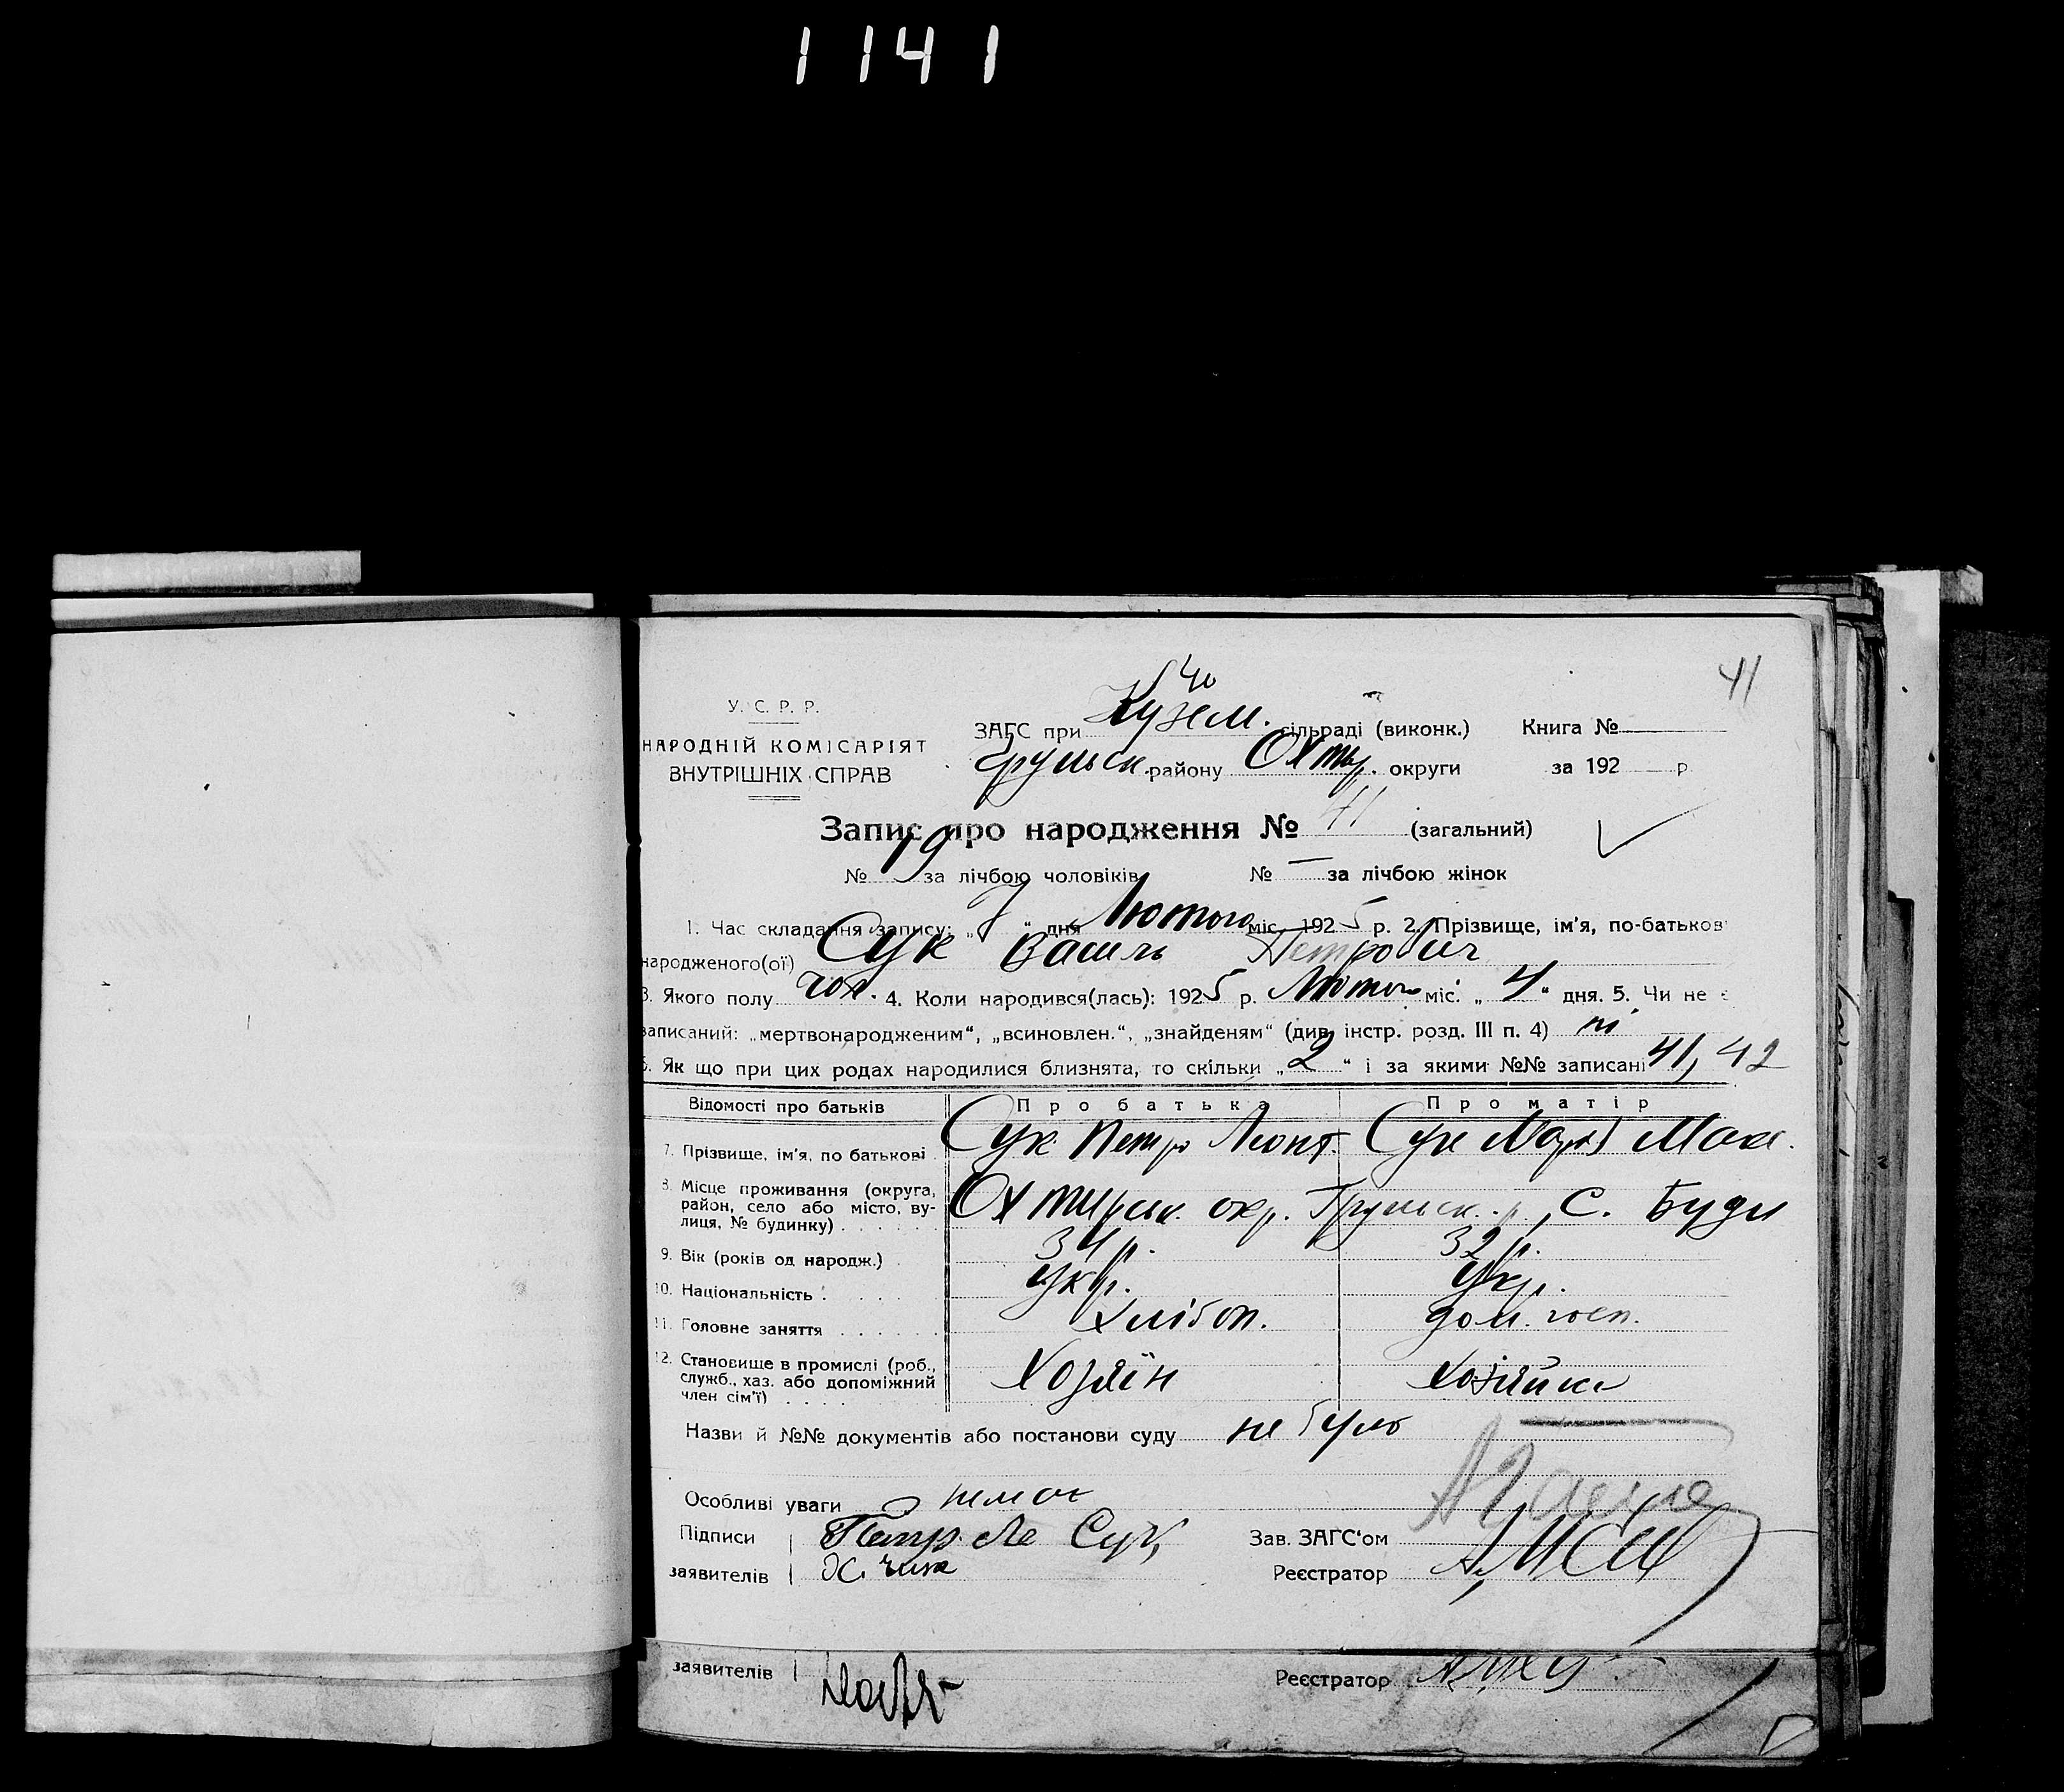 1141
41
У. С. Р. Р.
НАРОДНІЙ КОМІСАРІЯТ
ВНУТРІШНІХ СПРАВ
ЗАГС при Кузем. сільраді (виконк.) Книга №
Грунськ. району Охтир. округи за 192 р
Запис про народження № 41 (загальний)
№ 19 за лічбою чоловіків № — за лічбою жінок
1. Час складання запису: „7“ дня Лютого міс. 1925 р. 2. Прізвище, ім'я, по-батьков
народженого(ої) Сук Василь Петрович
3. Якого полу чол. 4. Коли народився(лась): 1925 р. Лютого міс. „4“ дня. 5. Чи не є
записаний: „мертвонародженим“, „всиновлен.“, „знайденям“ (див. інстр. розд. III п. 4) ні
6. Як що при цих родах народилися близнята, то скільки „2“ і за якими №№ записані 41, 42
Відомості про батьків Про батька Про матір
7. Прізвище, ім'я, по батькові Сук Петро Леонт. Сук Мар Мак.
8. Місце проживання (округа, район, село або місто, вулиця, № будинку) Охтирськ. окр. Грунськ. р., С. Буди
9. Вік (років од народж.) 34 р. 32 р.
10. Національність укр. Укр.
11. Головне заняття Хлібоп. дом. госп.
12. Становище в промислі (роб., служб., хаз. або допоміжний член сім'ї) Хозяїн Хозяйка
Назви й №№ документів або постанови суду не було
Особливі уваги нема
Підписи Петр. Ле Сук Зав. ЗАГС'ом
заявителів Реєстратор
заявителів Реєстратор